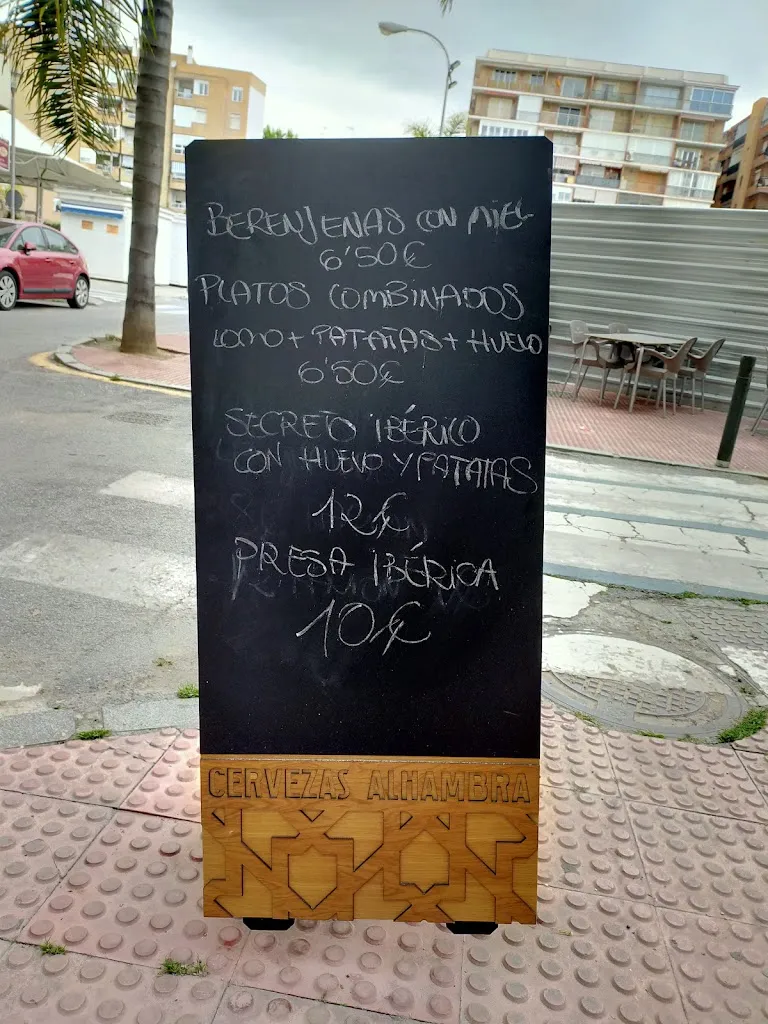 BERENJENAS CON MIEL
6'50€
PLATOS COMBINADOS
LOMO + PATATAS + HUEVO
6'50€
SECRETO IBÉRICO
CON HUEVO Y PATATAS
12€
PRESA IBÉRICA
10€
CERVEZAS ALHAMBRA